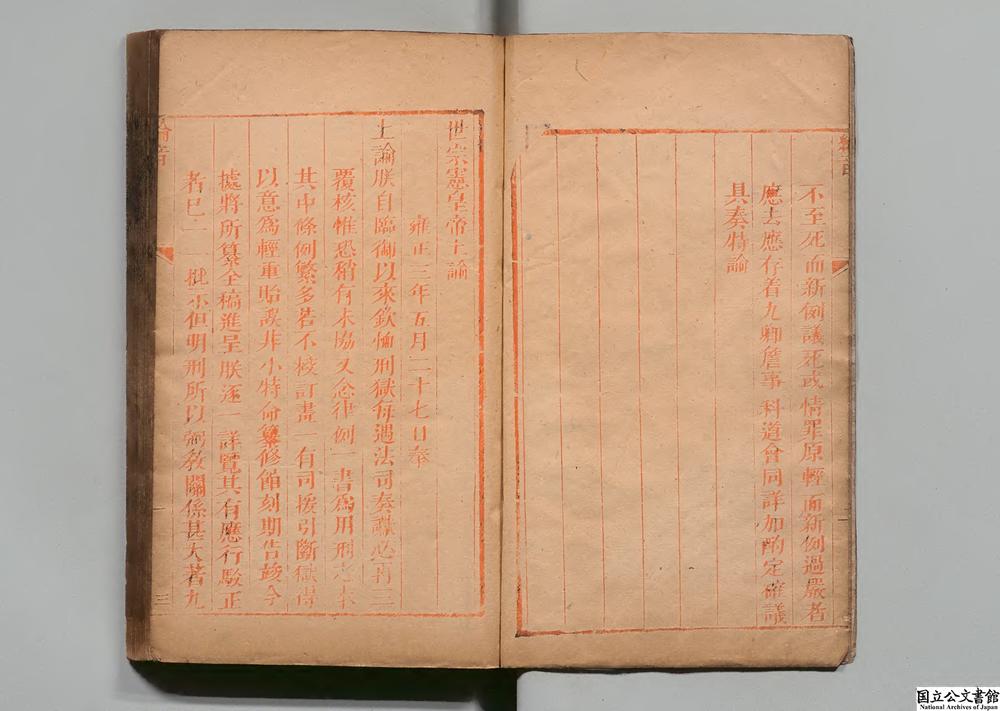 不至死而新例議死或情罪原輕而新例過嚴者
應去應存着九卿詹事科道會同詳加酌定確議
具奏特諭
世宗憲皇帝上諭
雍正三年五月二十七日奉
上諭朕自臨御以來欽恤刑獄每遇法司奏讞必再三
覆核惟恐稍有未協又念律例一書爲用刑之本
其中條例繁多若不校訂畫一有司援引斷獄得
以意爲輕重貽誤非小特命纂修館刻期告竣今
據將所纂全稿進呈朕逐一詳覽其有應行駁正
者已一一批示但明刑所以弼教關係甚大著九
三
国立公文書館
National Archives of Japan